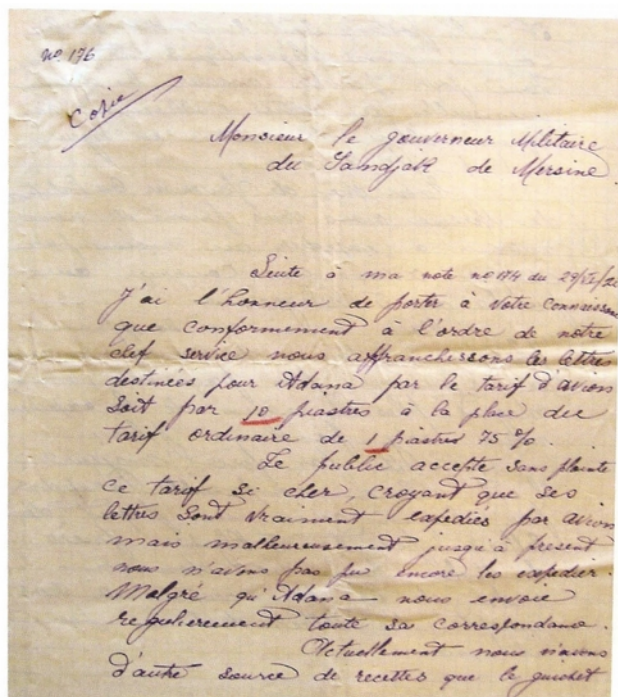 No. 176
Copie
Monsieur le gouverneur Militaire
du Sandjak de Mersine
Suite à ma note no 174 du 29/
J'ai l'honneur de porter à votre
que conformement à l'ordre de notre
chef service nous affranchessons les lettres
destinées pour Adana par le tarif d'avion
soit par 10 piastres à la place du
tarif ordinaire de 1 piastres 75 %.
Le public accepte sans plainte
ce tarif si cher, croyant que ses
lettres sont vraiment expediés par avion
mais malheureusement jusqu'à présent
nous n'avons pas pu encore les expedier.
Malgré qu'Adana nous envoie
regulierement toute sa correspondance.
Actuellement nous n'avons
d'autre source de recettes que le guichet